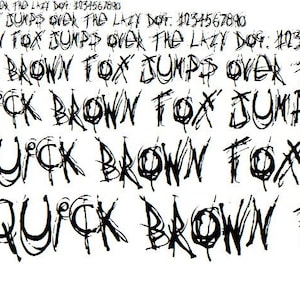 ER THE LAZY DOG. 1234567890
JUMPS OVER THE LAZY DOG. 1234567890
N FOX JUMPS OVER THE LAZY DOG. 123
BROWN FOX JUMPS OVER
CK BROWN FOX JUMP
UICK BROWN FOX
QUICK BROWN